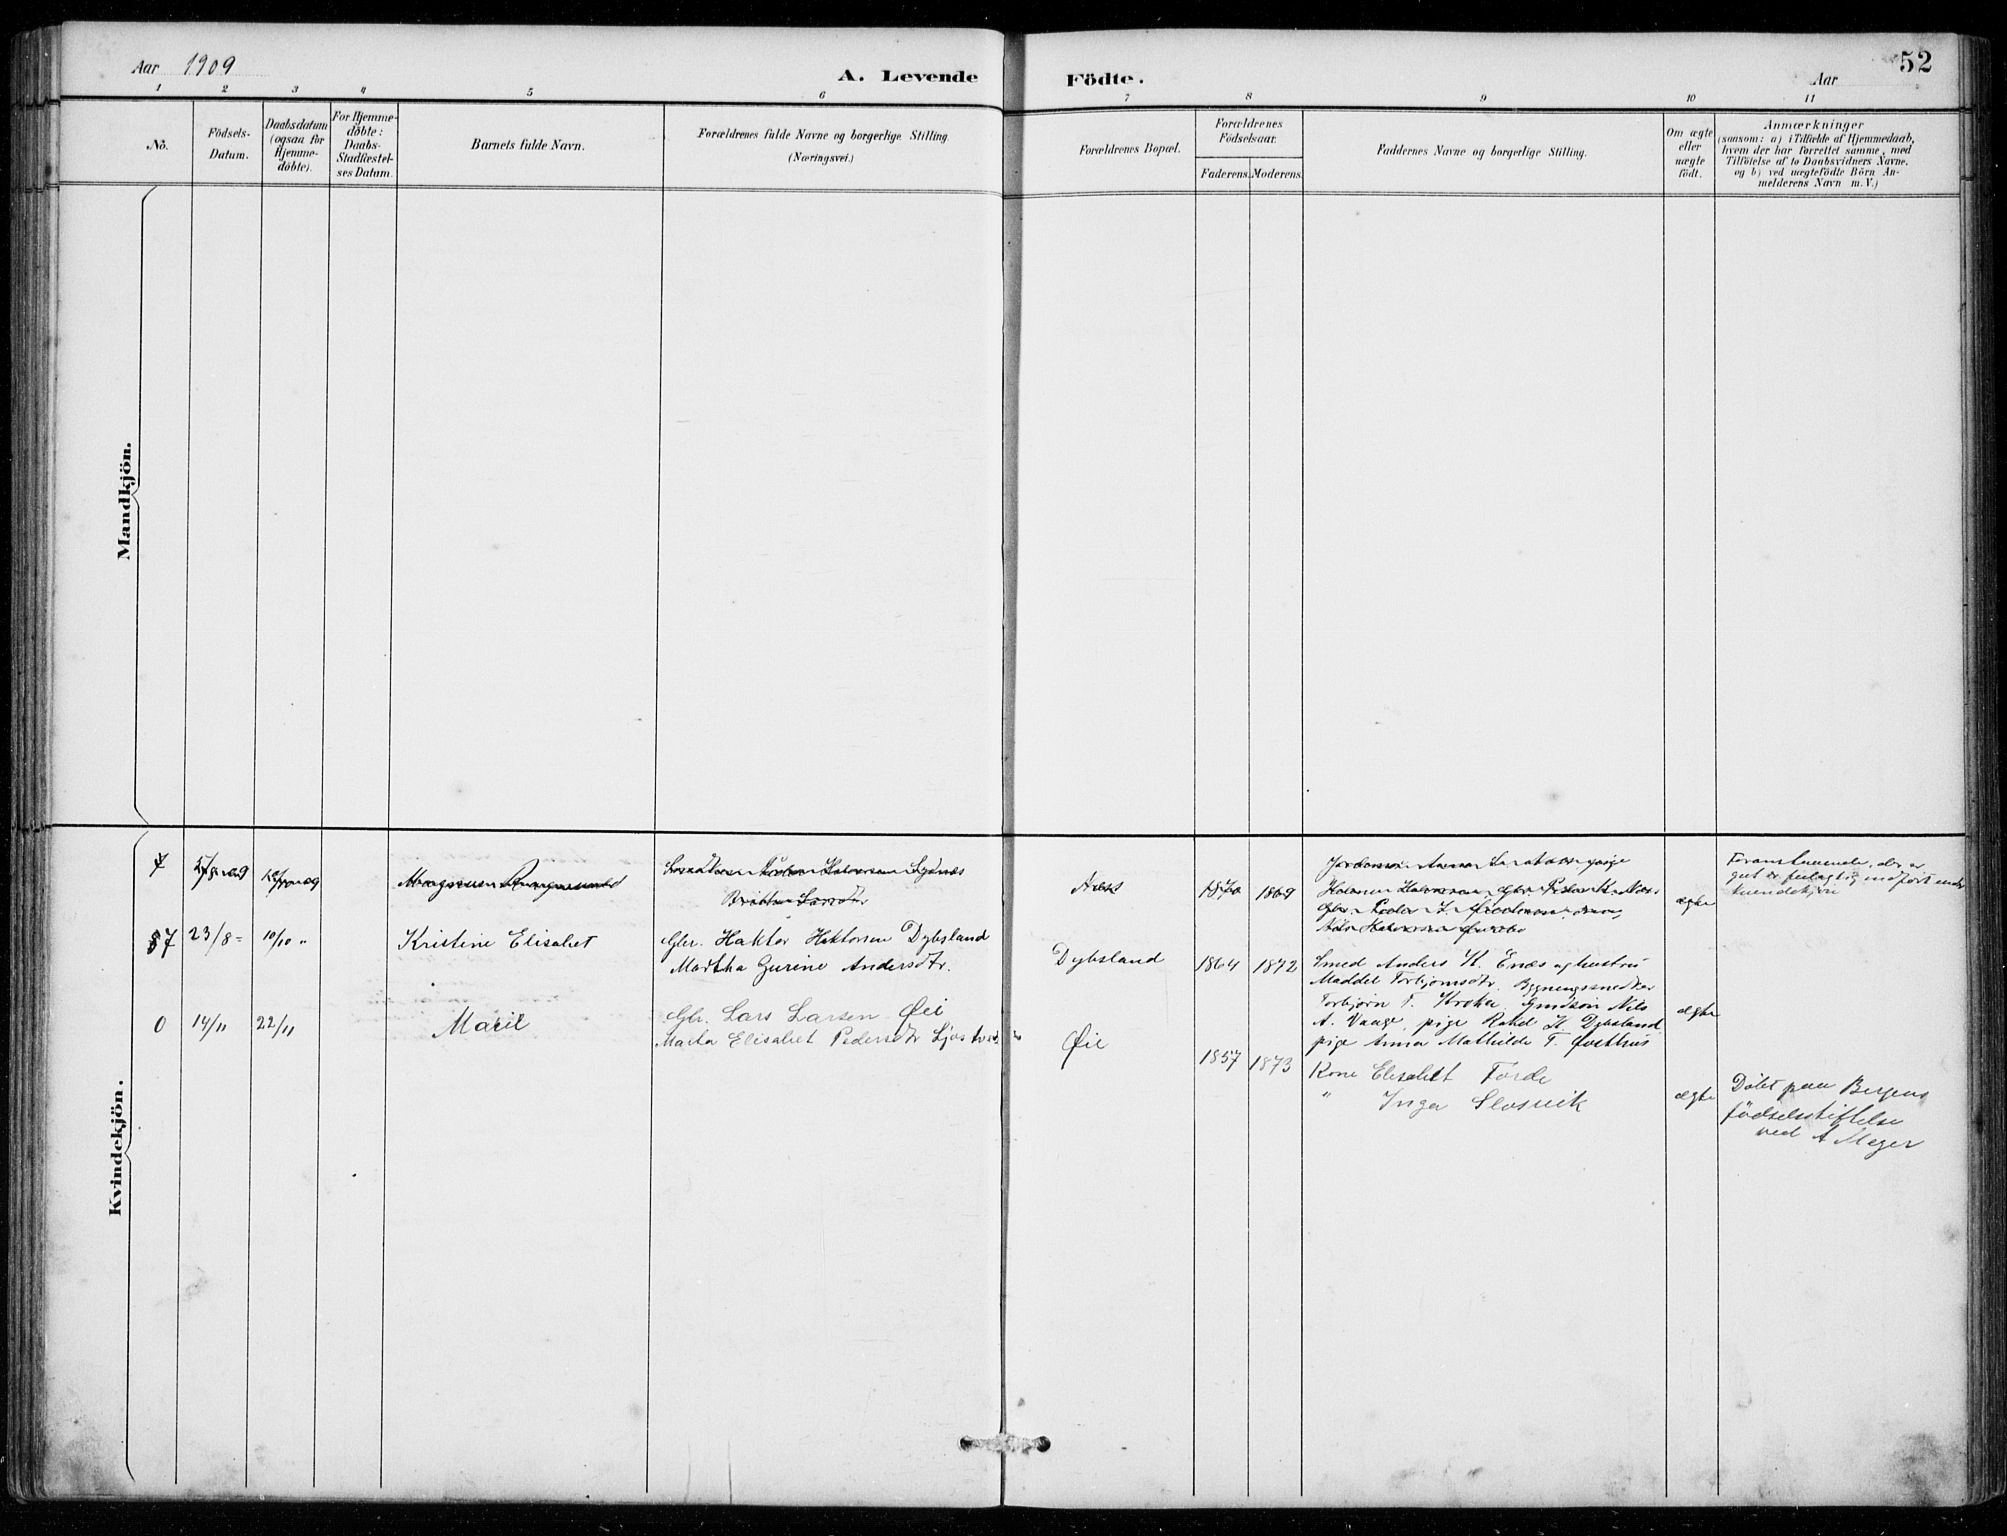 Aar 1909
A. Levende
Födte.
Aar
52
1 2 3 4 5 6 7 8 9 10 11
No.
Födsels-
Datum.
Daabsdatum
(ogsaa for
Hjemme-
døbte).
For Hjemme-
døbte:
Daabs-
Stadfæstel-
ses Datum.
Barnets fulde Navn.
Forældrenes fulde Navne og borgerlige Stilling.
(Næringsvei.)
Forældrenes Bopæl.
Forældrenes
Födselsaar.
Faderens.
Moderens.
Faddernes Navne og borgerlige Stilling.
Om ægte
eller
uægte
født.
Anmærkninger
(saasom: a) i Tilfælde af Hjemmedaab,
hvem der har forrettet samme, med
Tilföielse af to Daabsvidners Navne,
og b) ved uægtefödte Börn An-
melderens Navn m. V.)
Mandkjön.
Kvindekjön.
7
1870
1869
ægte
Foranstaaende, der er
gut er feilagtig indført under
kvindekjön
7 23/8 10/10 "
Kristine Elisabet
Gbr. Haktor Haktorsen Dybsland
Martha Gurine Andersdtr.
Dybsland
1864
1872
Smed Anders H. Enæs og hustru
Maddel Torbjørnsdtr. Bygningssnedker
Torbjørn T. Kroka, Gmdsøn Nils
A. Vaage, pige Rakel H. Dybsland
pige Anna Mathilde T. Østhus
ægte
0 14/11 22/11
Marie
Gbr. Lars Larsen Øie
Marta Elisabet Pedersdtr
Øie
1857
1873
Kone Elisabet Førde
" Inga
ægte
Døbt paa Bergens
fødselsstiftelse
ved A Meyer